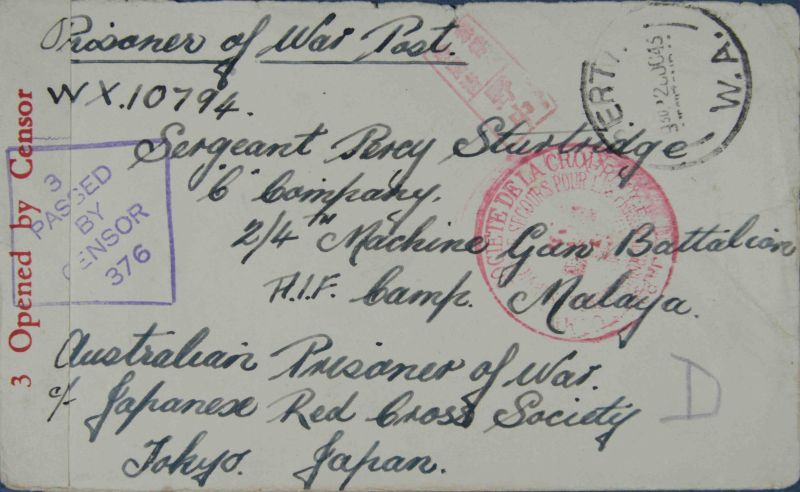 Prisoner of War Post.
WX.10794.
Sergeant Percy Sturtridge
"C" Company.
2/4TH Machine Gun Battalion
A.I.F. Camp. Malaya.
Australian Prisoner of War.
c/- Japanese Red Cross Society
Tokyo. Japan.
3 Opened by Censor
3
PASSED
BY
CENSOR
376
PERTH
W.A.
DE LA CROIX
SECOURS POUR
D